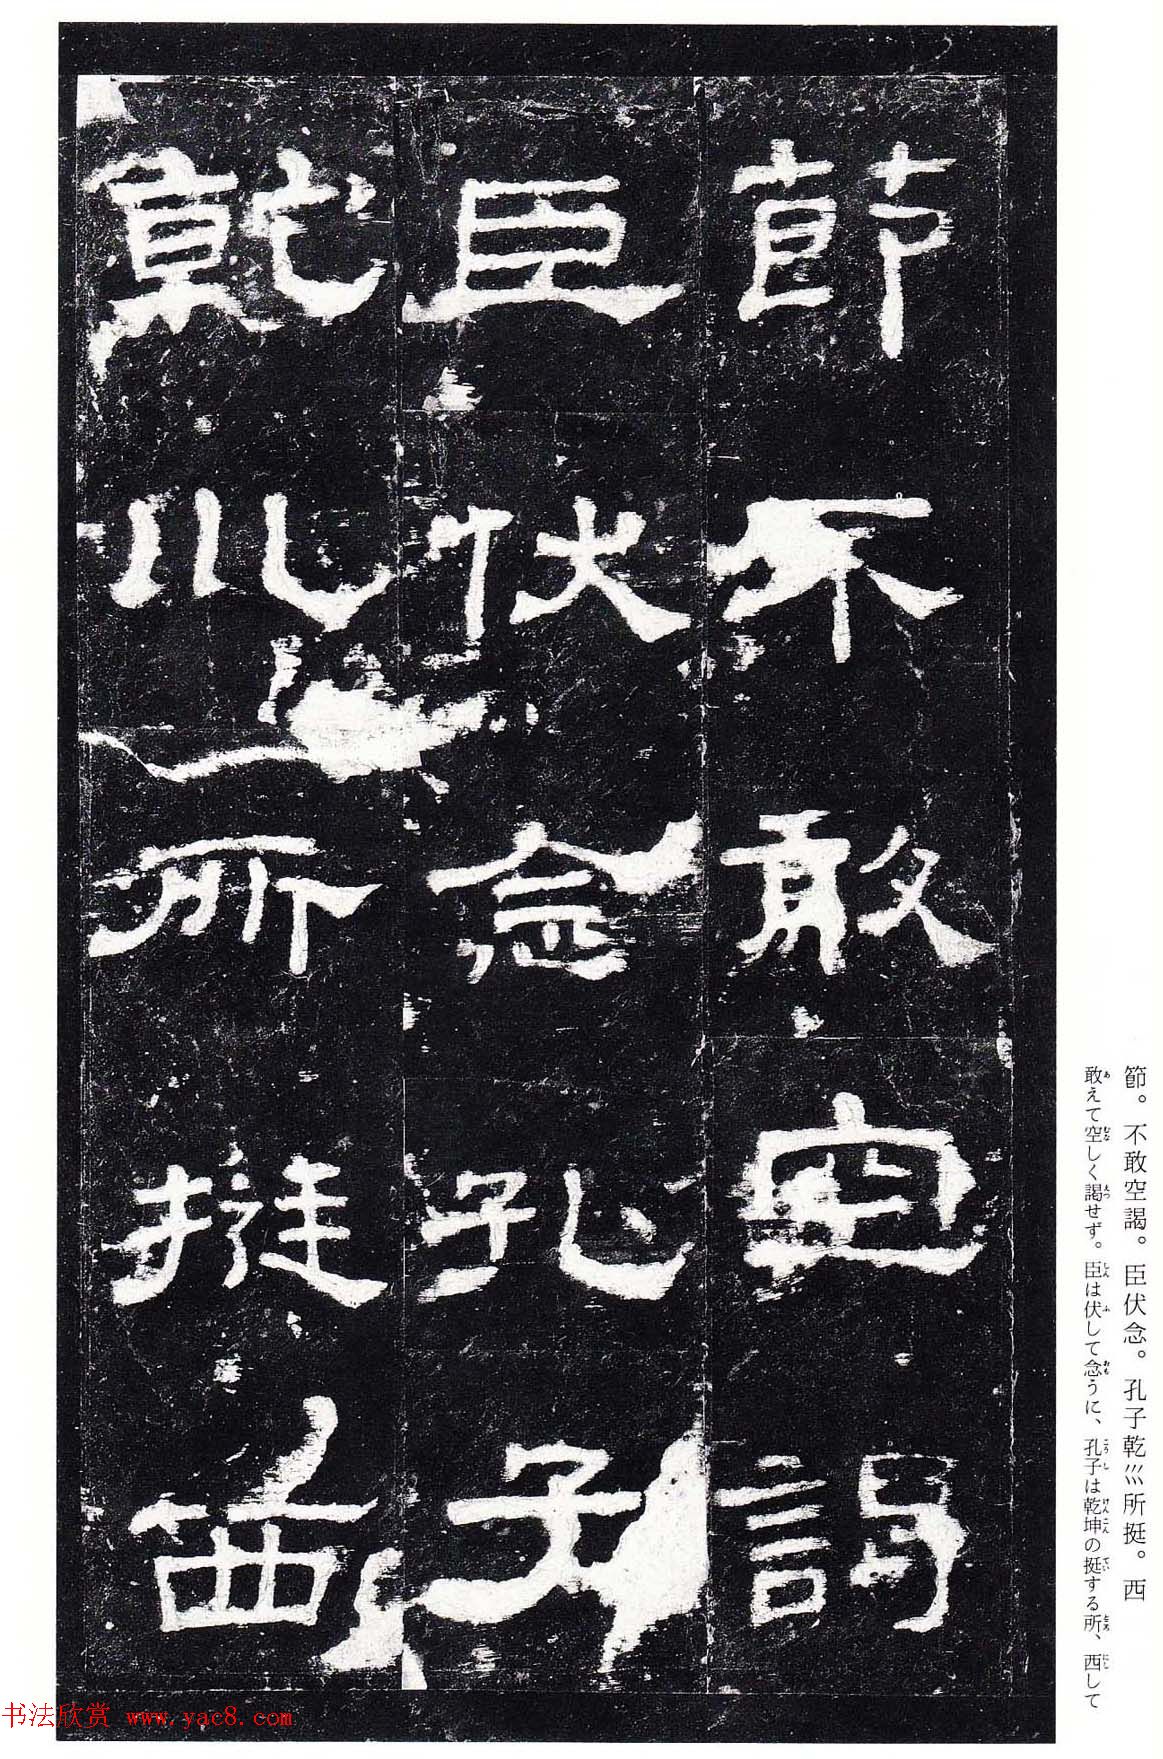 節不敢空謁
臣伏念孔子
乾巛所挺西
節。不敢空謁。臣伏念。孔子乾巛所挺。西
敢えて空しく謁せず。臣は伏して念うに、孔子は乾坤の挺する所、西して
书法欣赏 www.yac8.com